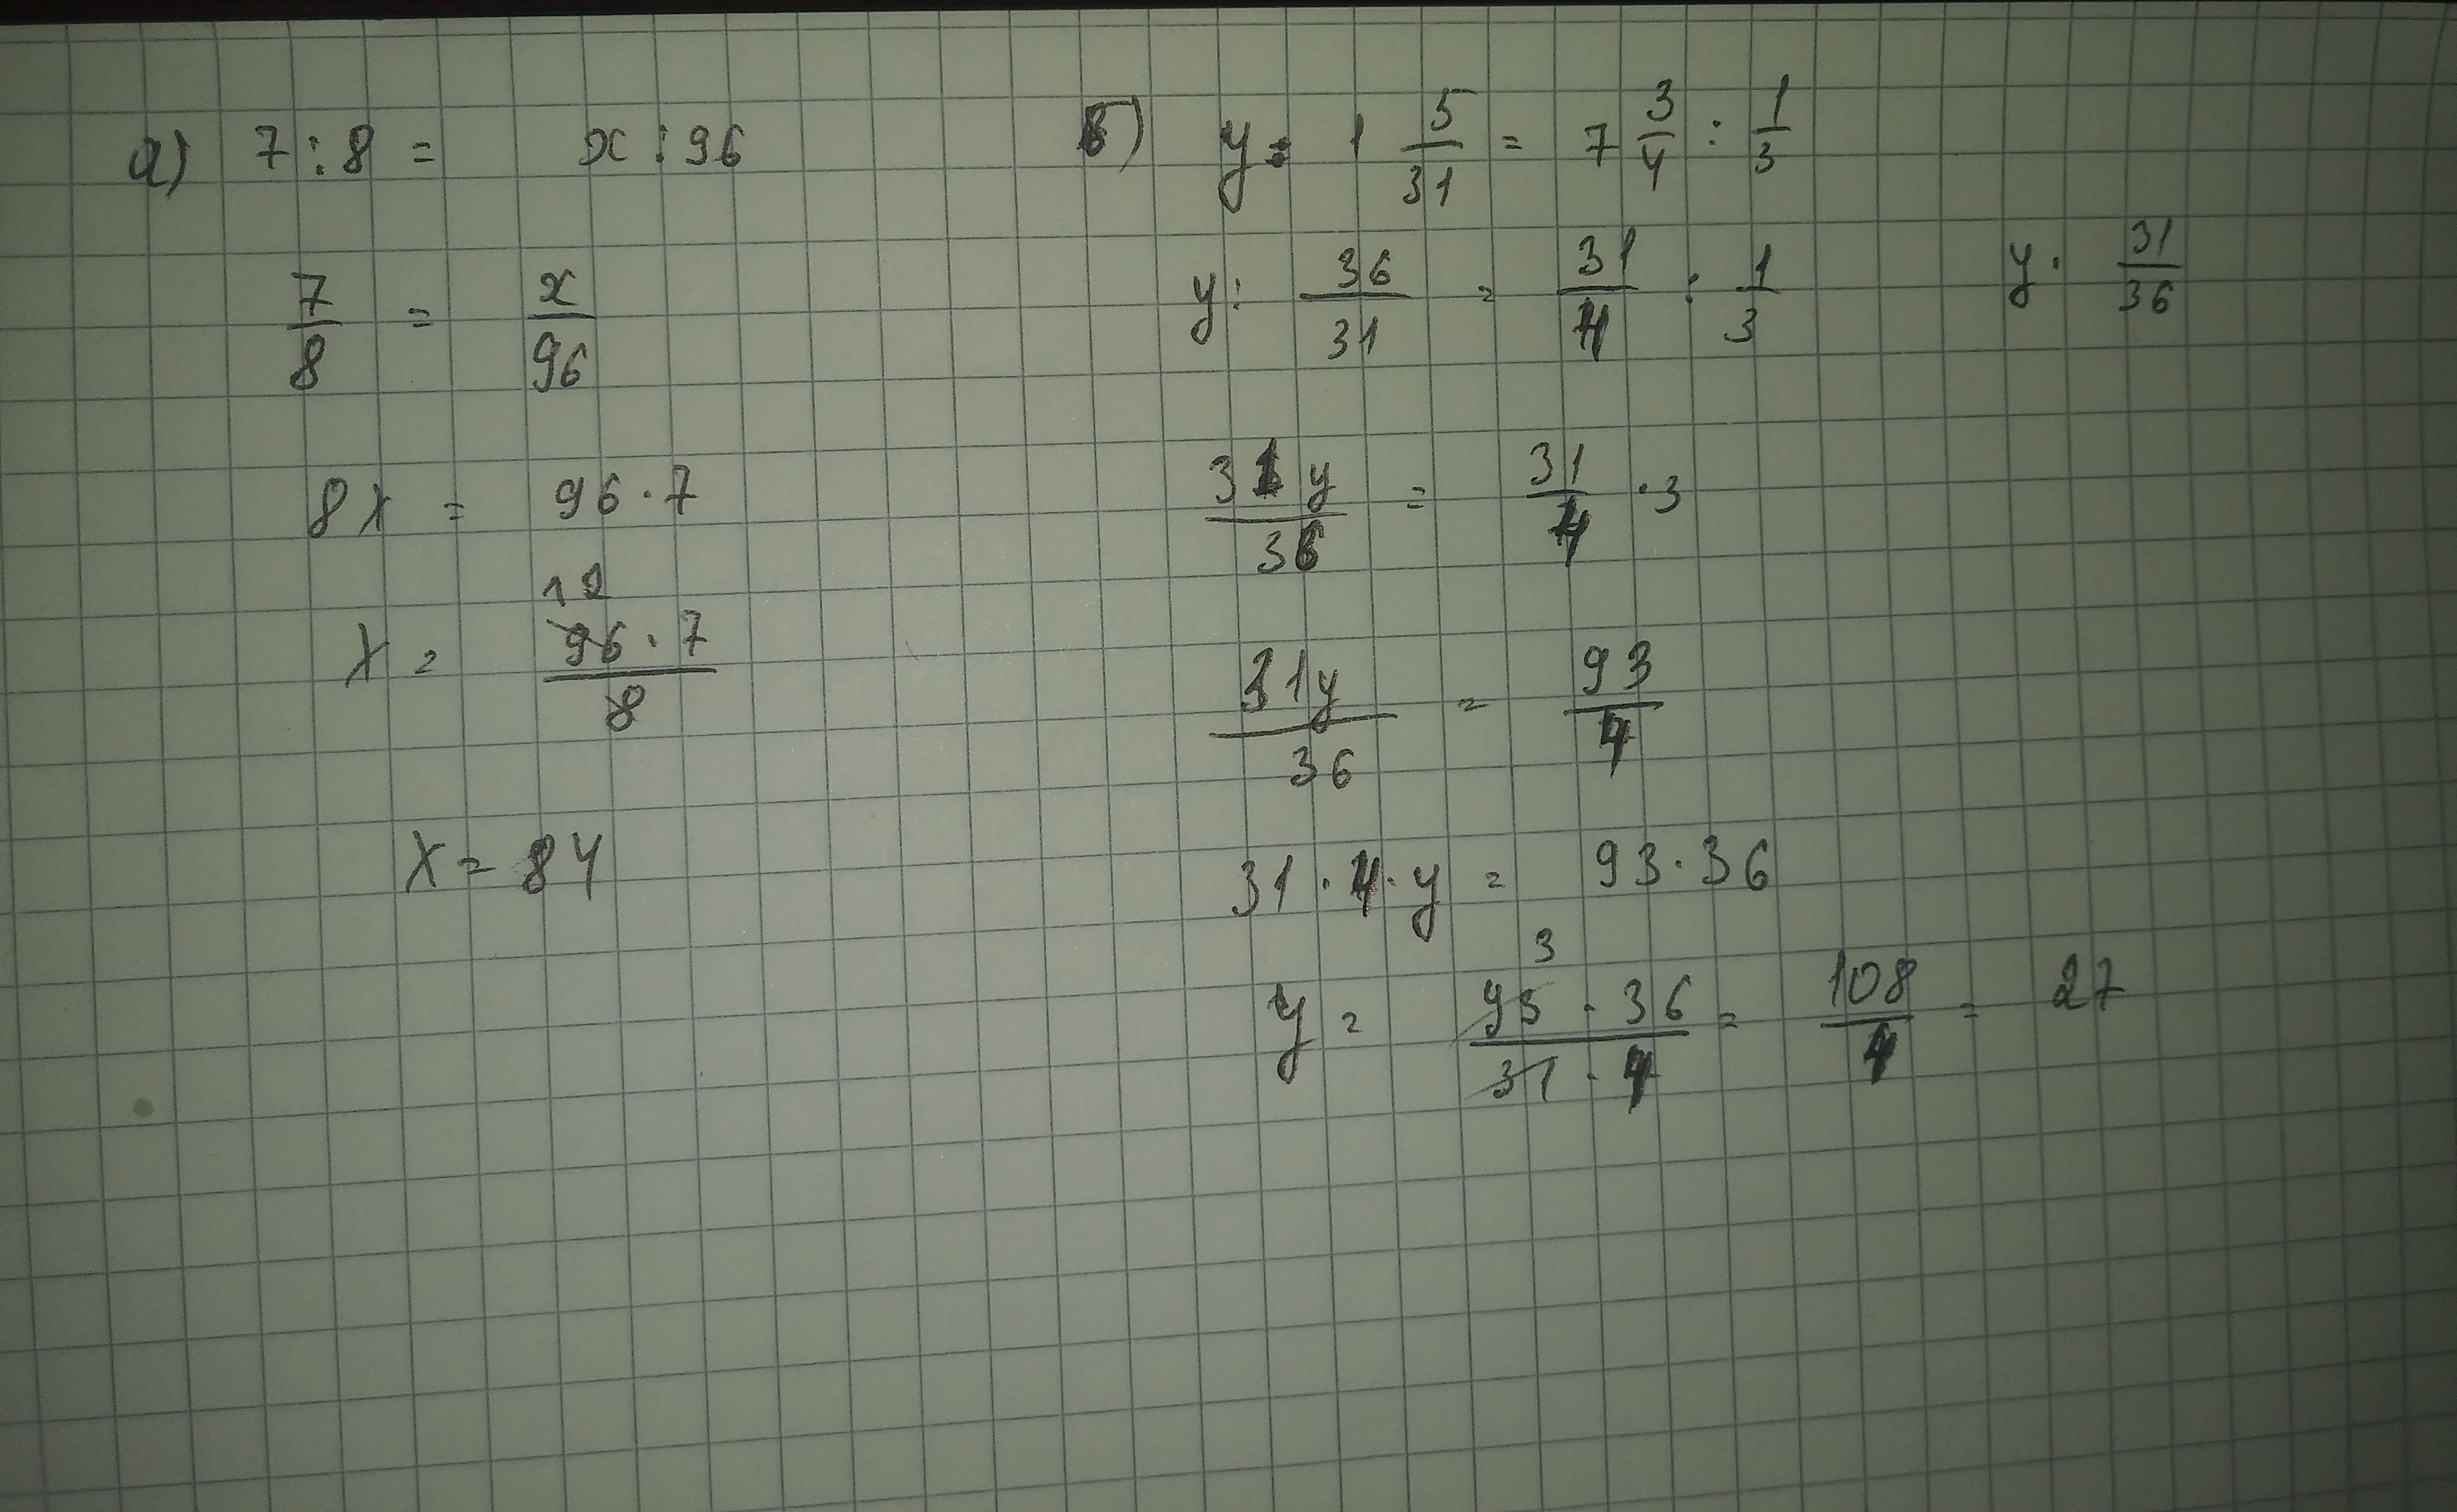 а) 7 : 8 = x : 96
7/8 = x/96
8x = 96 · 7
12
x = 96 · 7 / 8
x = 84
б) y : 1 5/31 = 7 3/4 : 1/3
y : 36/31 = 31/4 : 1/3
y · 31/36
31y/36 = 31/4 · 3
31y/36 = 93/4
31 · 4 · y = 93 · 36
3
y = 93 · 36 / 31 · 4 = 108/4 = 27